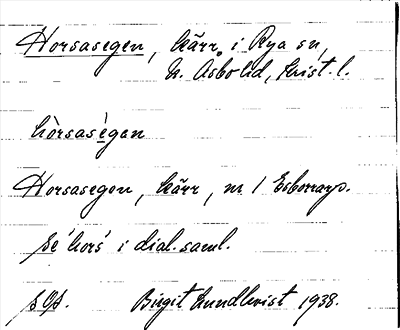 Horsasegen, kärr i Rya sn,
N. Åsbo hd, Krist. l.
hòrsasègan
Horsasegen, kärr, m /
se hors i dial. saml.
Birgit Lundkvist 1938.